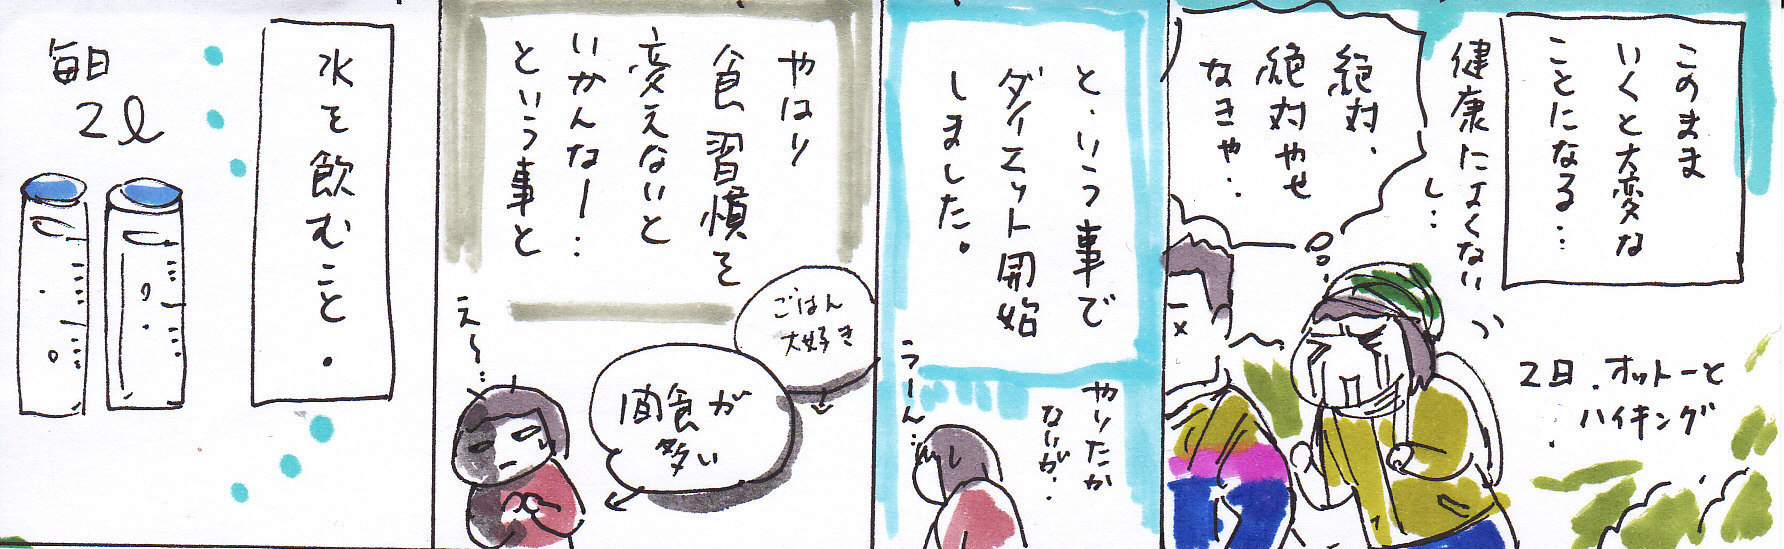 このまま
いくと大変な
ことになる…
健康によくない
し…
絶対、
絶対やせ
なきゃ…
2日、オットーと
ハイキング
と、いう事で
ダイエット開始
しました。
やりたか
ないが…
うーん…
やはり
食習慣を
変えないと
いかんなー…
という事と
ごはん
大好き
間食が
多い
え〜…
水を飲むこと。
毎日
2ℓ